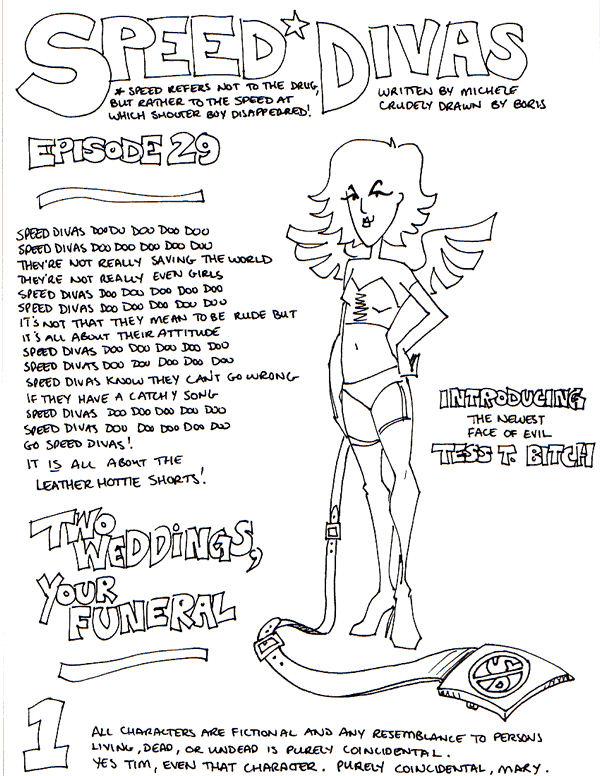 SPEED* DIVAS
* SPEED REFERS NOT TO THE DRUG,
BUT RATHER TO THE SPEED AT
WHICH SHOUTER BOY DISAPPEARED!
WRITTEN BY MICHELE
CRUDELY DRAWN BY BORIS
EPISODE 29
SPEED DIVAS DOO DU DOO DOO DOO
SPEED DIVAS DOO DOO DOO DOO DUU
THEY'RE NOT REALLY SAVING THE WORLD
THEY'RE NOT REALLY EVEN GIRLS
SPEED DIVAS DOO DOU DOO DOO DOO
SPEED DIVAS DOO DOO DOO DOU DUU
IT'S NOT THAT THEY MEAN TO BE RUDE BUT
IT'S ALL ABOUT THEIR ATTITUDE
SPEED DIVAS DOO DOU DOO DOO DOO
SPEED DIVATS DOO DOU DOO DOO DOU
SPEED DIVAS KNOW THEY CAN'T GO WRONG
IF THEY HAVE A CATCHY SONG
SPEED DIVAS DOO DOO DOO DOU DOO
SPEED DIVAS DOU DOO DOO DOO DUO
GO SPEED DIVAS!
IT IS ALL ABOUT THE
LEATHER HOTTIE SHORTS!
INTRODUCING
THE NEWEST
FACE OF EVIL
TESS T. BITCH
TWO
WEDDINGS,
YOUR
FUNERAL
SD
1
ALL CHARACTERS ARE FICTIONAL AND ANY RESEMBLANCE TO PERSONS
LIVING, DEAD, OR UNDEAD IS PURELY COINCIDENTAL.
YES TIM, EVEN THAT CHARACTER. PURELY COINCIDENTAL, MARY.